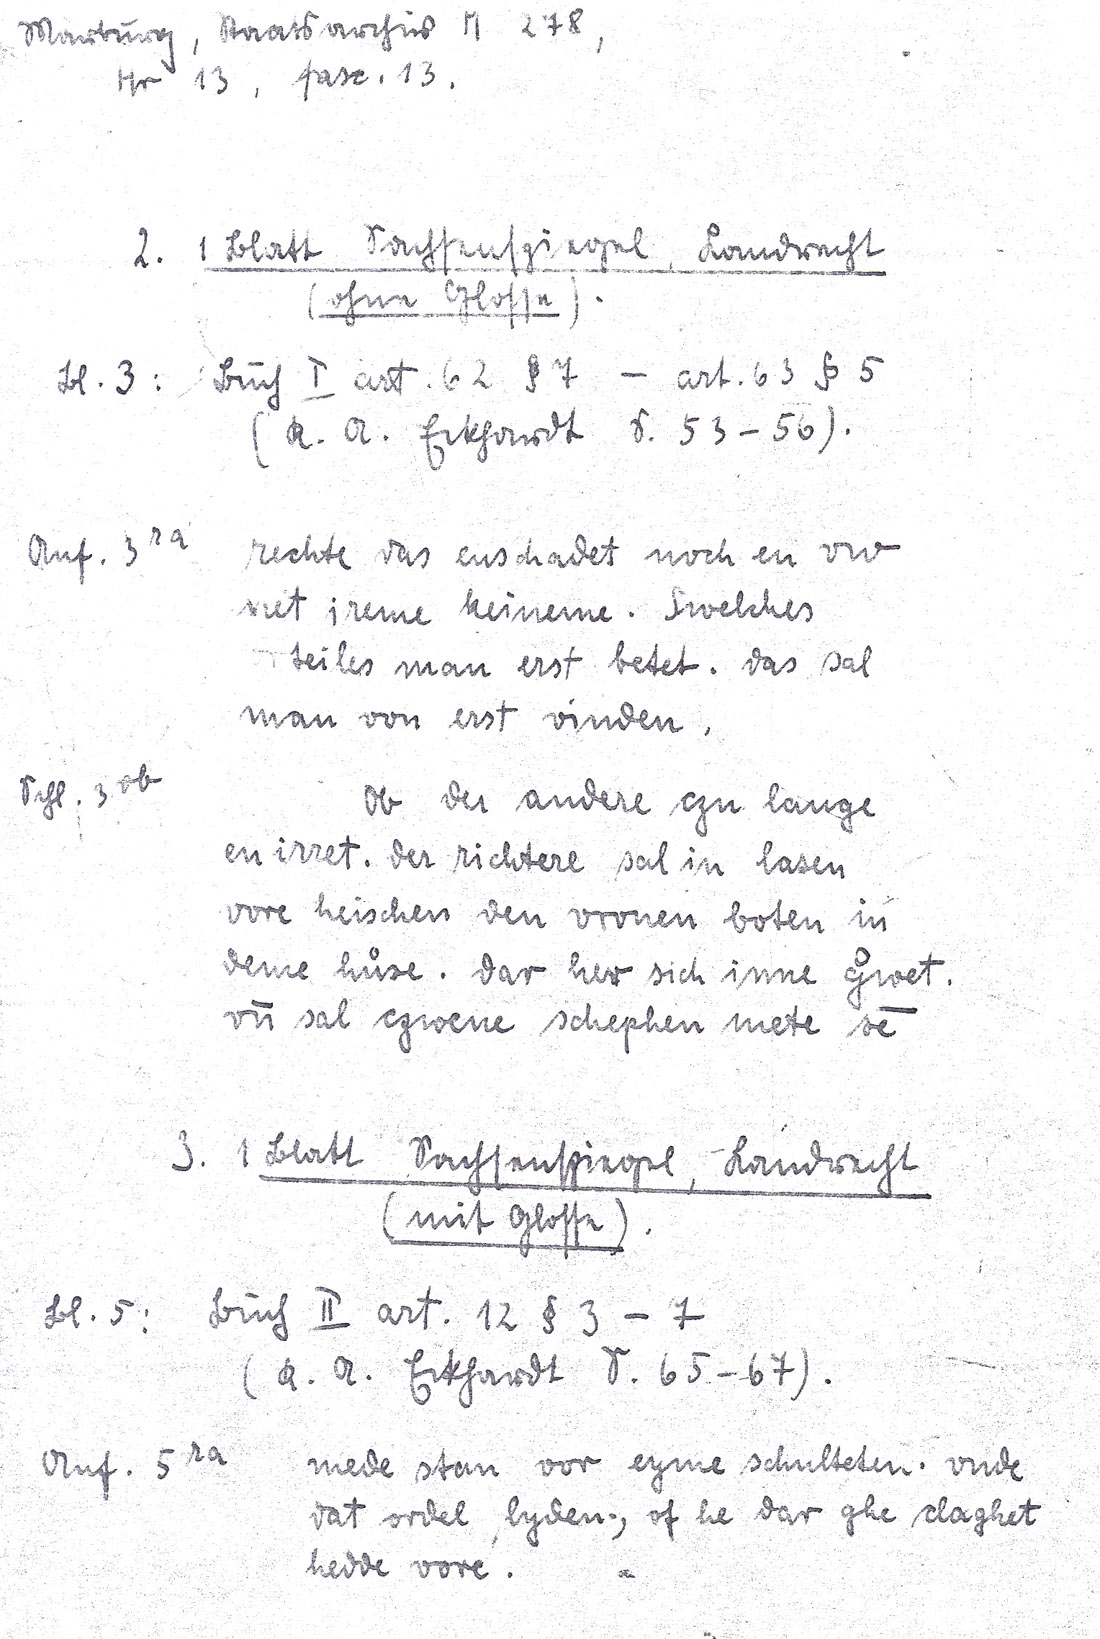 Marburg, Staatsarchiv M 278,
Nr 13, fasc. 13.
2. 1 Blatt Sachsenspiegel, Landrecht
(ohne Glosse).
Bl. 3: Buch I art. 62 § 7 – art. 63 § 5
(K. A. Eckhardt S. 53–56).
Anf. 3ra rechte das enschadet noch en vro
met ireme keineme. Swelches
teiles man erst betet. das sal
man von erst vinden.
Schl. 3vb Ob der andere czu lange
en irret. der richtere sal in lasen
vore heischen den vronen boten in
deme hůse. dar her sich inne
vn̄ sal czwene schephen mete sē
3. 1 Blatt Sachsenspiegel, Landrecht
(mit Glosse).
Bl. 5: Buch II art. 12 § 3 – 7
(K. A. Eckhardt S. 65–67).
Anf. 5ra mede stan vor eyme schulteten. vnde
dat ordel lyden, of he dar ghe claghet
hedde vore.